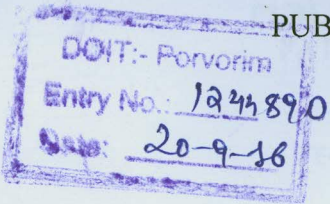 PUB
DOIT:- Porvorim
Entry No.: 1244890
Date: 20-9-16